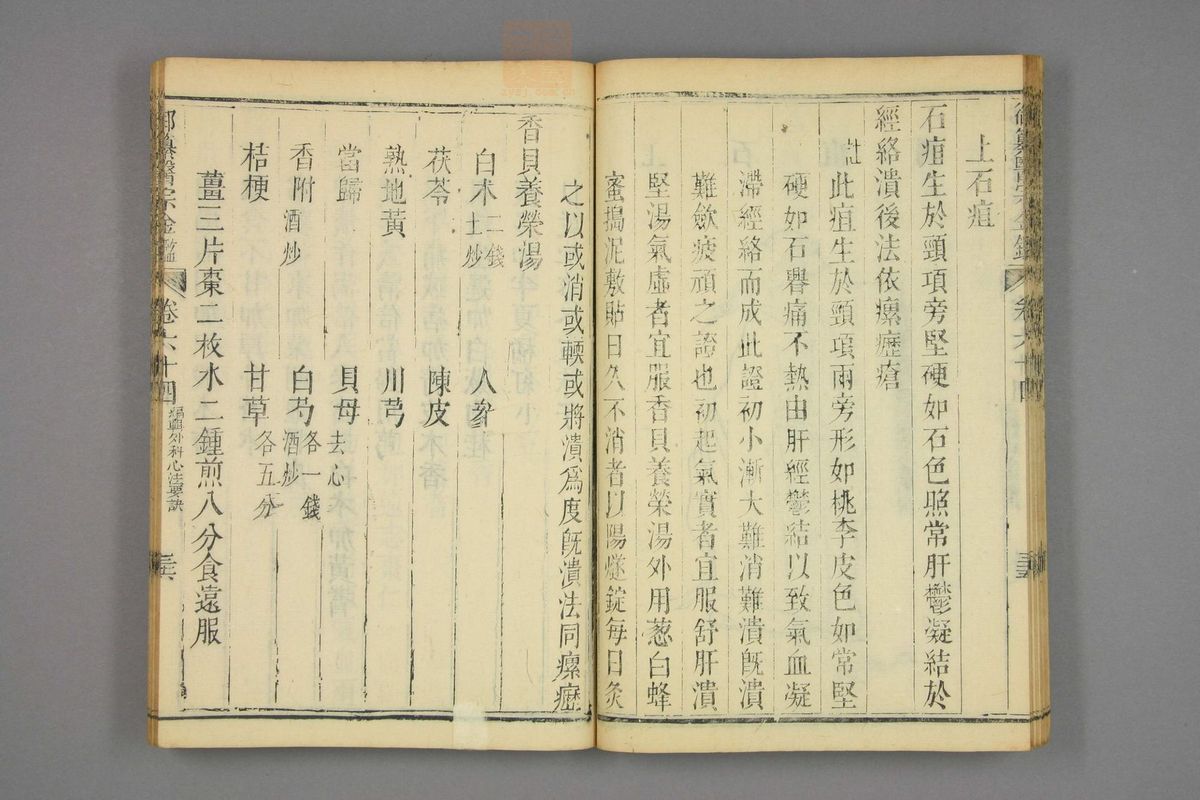 御纂醫宗金鑑 卷六十四 三五
上石疽
石疽生於頸項旁堅硬如石色照常肝鬱凝結於
經絡潰後法依瘰癧瘡
註此疽生於頸項兩旁形如桃李皮色如常堅
硬如石臖痛不熱由肝經鬱結以致氣血凝
滯經絡而成此證初小漸大難消難潰既潰
難斂疲頑之證也初起氣實者宜服舒肝潰
堅湯氣虛者宜服香貝養榮湯外用葱白蜂
蜜搗泥敷貼日久不消者以陽燧錠每日灸
之以或消或輭或將潰爲度既潰法同瘰癧
香貝養榮湯
白术土炒二錢 人參
茯苓 陳皮
熟地黃 川芎
當歸 貝母去心
香附酒炒 白芍酒炒各一錢
桔梗 甘草各五分
薑三片棗二枚水二鍾煎八分食遠服
御纂醫宗金鑑 卷六十四 編輯外科心法要訣 三六